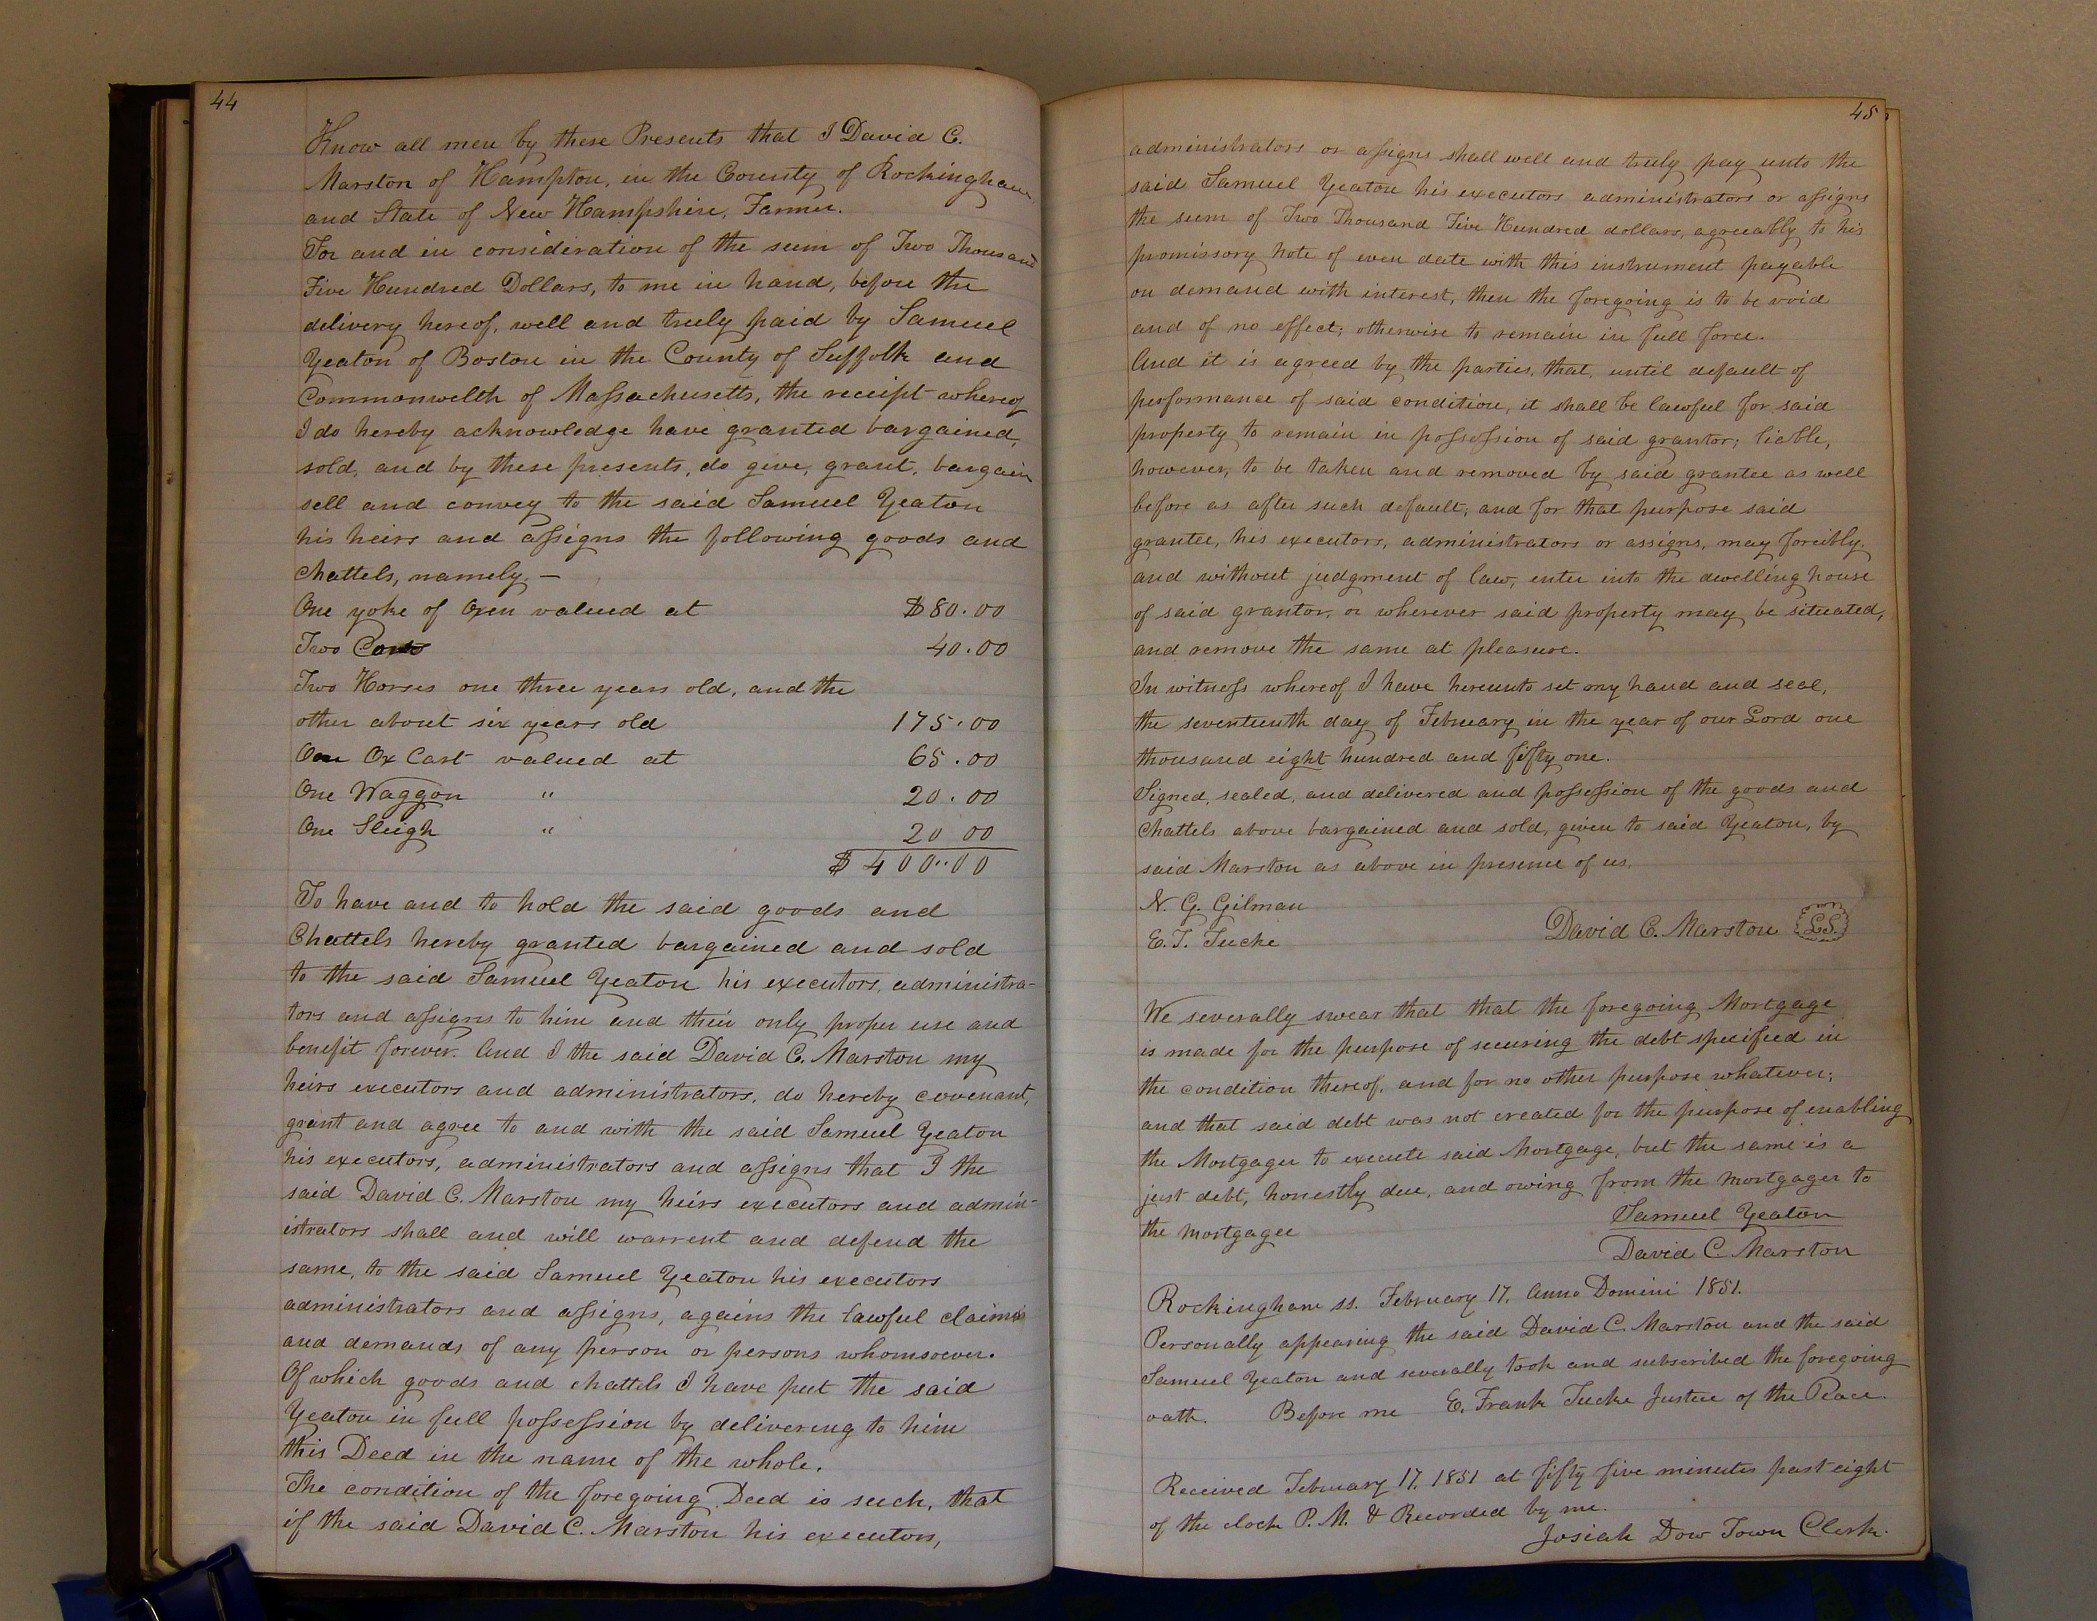 44
Know all men by these Presents that I David C.
Marston of Hampton, in the County of Rockingham
and State of New Hampshire, Farmer.
For and in consideration of the sum of Two Thousand
Five Hundred Dollars, to me in hand, before the
delivery hereof, well and truly paid by Samuel
Yeaton of Boston in the County of Suffolk and
Commonwelth of Massachusetts, the receipt whereof
I do hereby acknowledge have granted bargained,
sold, and by these presents, do give, grant, bargain
sell and convey to the said Samuel Yeaton
his heirs and assigns the following goods and
Chattels, namely. —
One yoke of Oxen valued at $80.00
Two Cows 40.00
Two Horses one three years old, and the
other about six years old 175.00
One Ox Cart valued at 65.00
One Waggon " 20.00
One Sleigh " 20 00
$400.00
To have and to hold the said goods and
Chattels hereby granted bargained and sold
to the said Samuel Yeaton his executors, administra-
tors and assigns to him and their only proper use and
benefit forever. And I the said David C. Marston my
heirs executors and administrators, do hereby covenant,
grant and agree to and with the said Samuel Yeaton
his executors, administrators and assigns that I the
said David C. Marston my heirs executors and admin-
istrators shall and will warrent and defend the
same, to the said Samuel Yeaton his executors
administrators and assigns, agains the lawful claims
and demands of any person or persons whomsoever.
Of which goods and chattels I have put the said
Yeaton in full possession by delivering to him
this Deed in the name of the whole.
The condition of the foregoing Deed is such, that
if the said David C. Marston his executors,
45
administrators or assigns shall well and truly pay unto the
said Samuel Yeaton his executors administrators or assigns
the sum of Two Thousand Five Hundred dollars, agreeably to his
promissory note of even date with this instrument payable
on demand with interest, then the foregoing is to be void
and of no effect; otherwise to remain in full force.
And it is agreed by the parties, that, until default of
performance of said condition, it shall be lawful for said
property to remain in possession of said grantor; liable,
however, to be taken and removed by said grantee as well
before as after such default; and for that purpose said
grantee, his executors, administrators or assigns, may forcibly
and without judgment of law, enter into the dwelling house
of said grantor, or wherever said property may be situated,
and remove the same at pleasure.
In witness whereof I have hereunto set my hand and seal,
the seventeenth day of February in the year of our Lord one
thousand eight hundred and fifty one.
Signed, sealed, and delivered and possession of the goods and
Chattels above bargained and sold, given to said Yeaton, by
said Marston as above in presence of us.
N. G. Gilman
E. F. Tucke
David C. Marston L.S.
We severally swear that that the foregoing Mortgage
is made for the purpose of securing the debt specified in
the condition thereof, and for no other purpose whatever;
and that said debt was not created for the purpose of enabling
the Mortgager to execute said Mortgage, but the same is a
just debt, honestly due, and owing from the mortgager to
the mortgagee
Samuel Yeaton
David C Marston
Rockingham ss. February 17, Anno Domini 1851.
Personally appearing the said David C Marston and the said
Samuel Yeaton and severally took and subscribed the foregoing
oath. Before me E. Frank Tucke Justice of the Peace
Received February 17, 1851 at fifty five minutes past eight
of the clock P. M. & Recorded by me.
Josiah Dow Town Clerk.